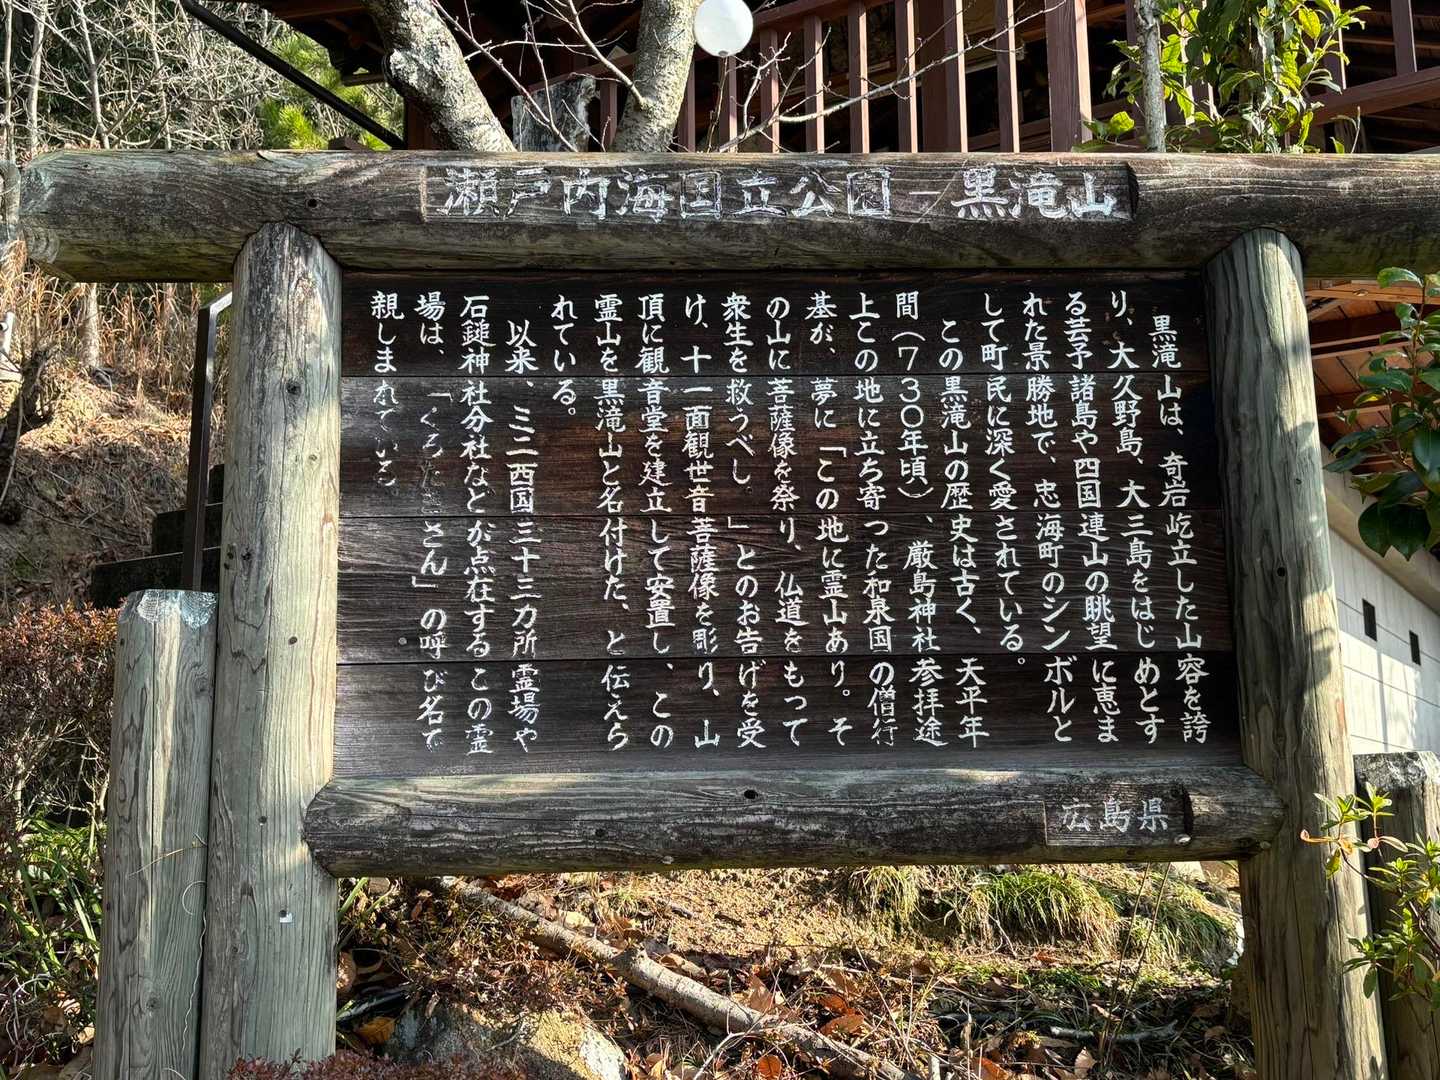 瀬戸内海国立公園―黒滝山
黒滝山は、奇岩屹立した山容を誇
り、大久野島、大三島をはじめとす
る芸予諸島や四国連山の眺望に恵ま
れた景勝地で、忠海町のシンボルと
して町民に深く愛されている。
この黒滝山の歴史は古く、天平年
間（７３０年頃）、厳島神社参拝途
上この地に立ち寄った和泉国の僧行
基が、夢に「この地に霊山あり。そ
の山に菩薩像を祭り、仏道をもって
衆生を救うべし。」とのお告げを受
け、十一面観世音菩薩像を彫り、山
頂に観音堂を建立して安置し、この
霊山を黒滝山と名付けた、と伝えら
れている。
以来、ミニ西国三十三カ所霊場や
石鎚神社分社などが点在するこの霊
場は、「くろたきさん」の呼び名で
親しまれている。
広島県